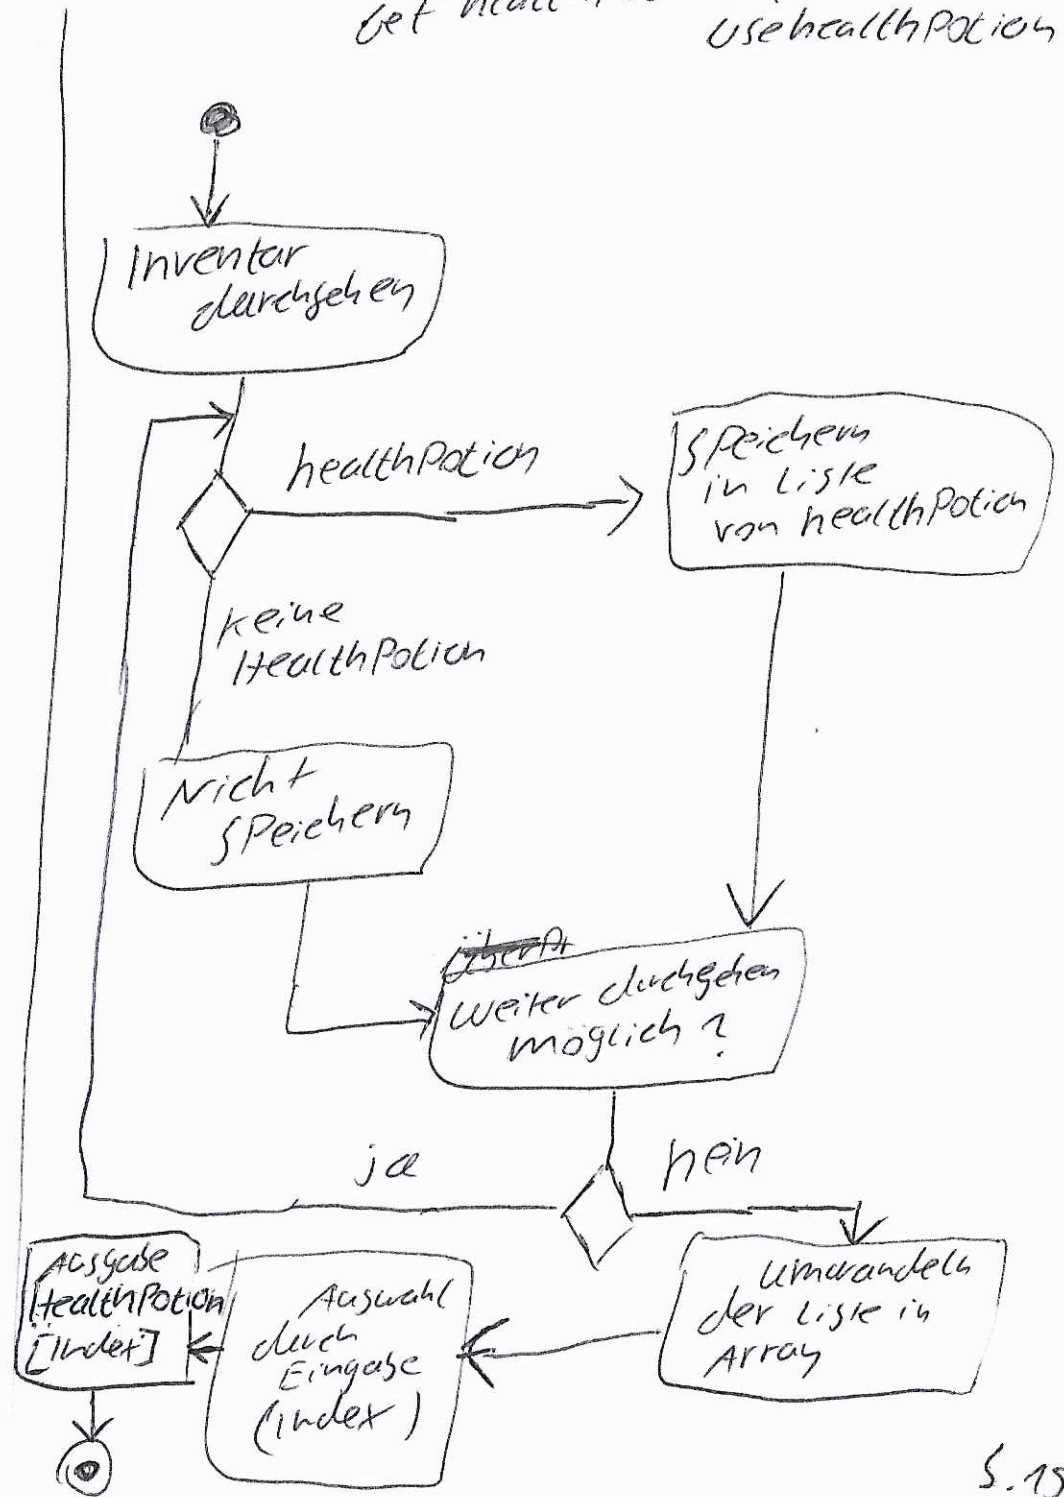 Get
usehealthPotion
Inventar
durchgehen
healthPotion
Speichern
in Liste
von healthPotion
keine
HealthPotion
Nicht
Speichern
Weiter durchgehen
möglich ?
ja
nein
Umwandeln
der Liste in
Array
Auswahl
durch
Eingabe
(Index)
Ausgabe
HealthPotion
[Index]